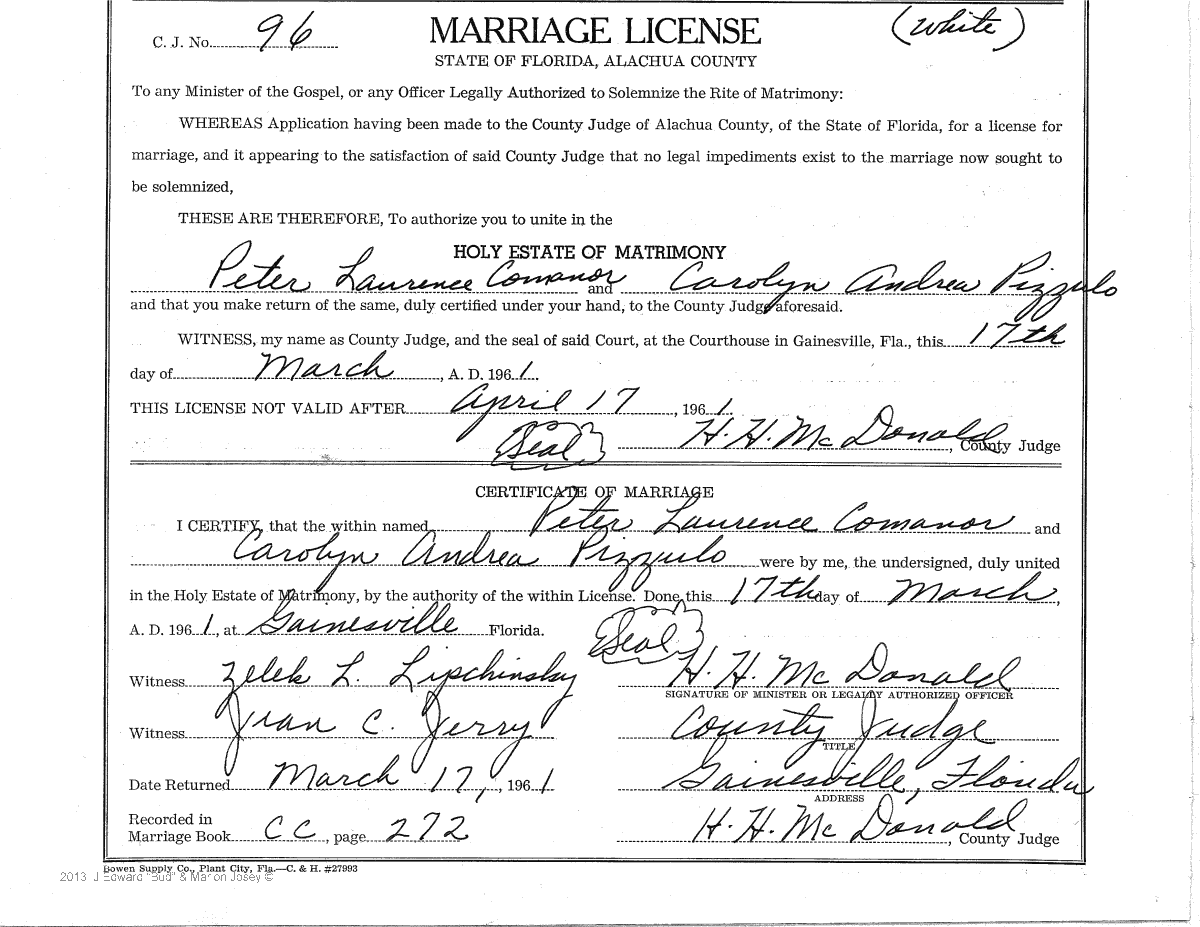 C. J. No. 96 MARRIAGE LICENSE (White)
STATE OF FLORIDA, ALACHUA COUNTY
To any Minister of the Gospel, or any Officer Legally Authorized to Solemnize the Rite of Matrimony:
WHEREAS Application having been made to the County Judge of Alachua County, of the State of Florida, for a license for
marriage, and it appearing to the satisfaction of said County Judge that no legal impediments exist to the marriage now sought to
be solemnized,
THESE ARE THEREFORE, To authorize you to unite in the
HOLY ESTATE OF MATRIMONY
Peter Laurence Comanor and Carolyn Andrea Pizzulo
and that you make return of the same, duly certified under your hand, to the County Judge aforesaid.
WITNESS, my name as County Judge, and the seal of said Court, at the Courthouse in Gainesville, Fla., this 17th
day of March, A. D. 1961.
THIS LICENSE NOT VALID AFTER April 17, 1961.
(Seal) H. H. McDonald, County Judge
CERTIFICATE OF MARRIAGE
I CERTIFY, that the within named Peter Laurence Comanor and
Carolyn Andrea Pizzulo were by me, the undersigned, duly united
in the Holy Estate of Matrimony, by the authority of the within License. Done, this 17th day of March,
A. D. 1961, at Gainesville Florida.
(Seal)
Witness Zelek L. Lipchinsky H. H. McDonald
SIGNATURE OF MINISTER OR LEGALLY AUTHORIZED OFFICER
Witness Jean C. Jerry County Judge
TITLE
Date Returned March 17, 1961 Gainesville, Florida
ADDRESS
Recorded in
Marriage Book CC, page 272 H. H. McDonald, County Judge
Bowen Supply Co., Plant City, Fla.—C. & H. #27993
2013 J Edward "Bud" & Marion Josey ©